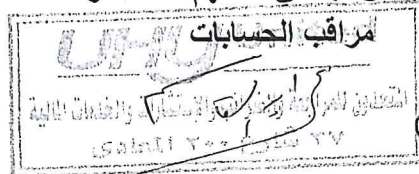 مراقب الحسابات
UHY
المتحدون للمراجعة والضرائب والاستشارات والخدمات المالية
٢٧ شارع ٢٠٠ المعادي